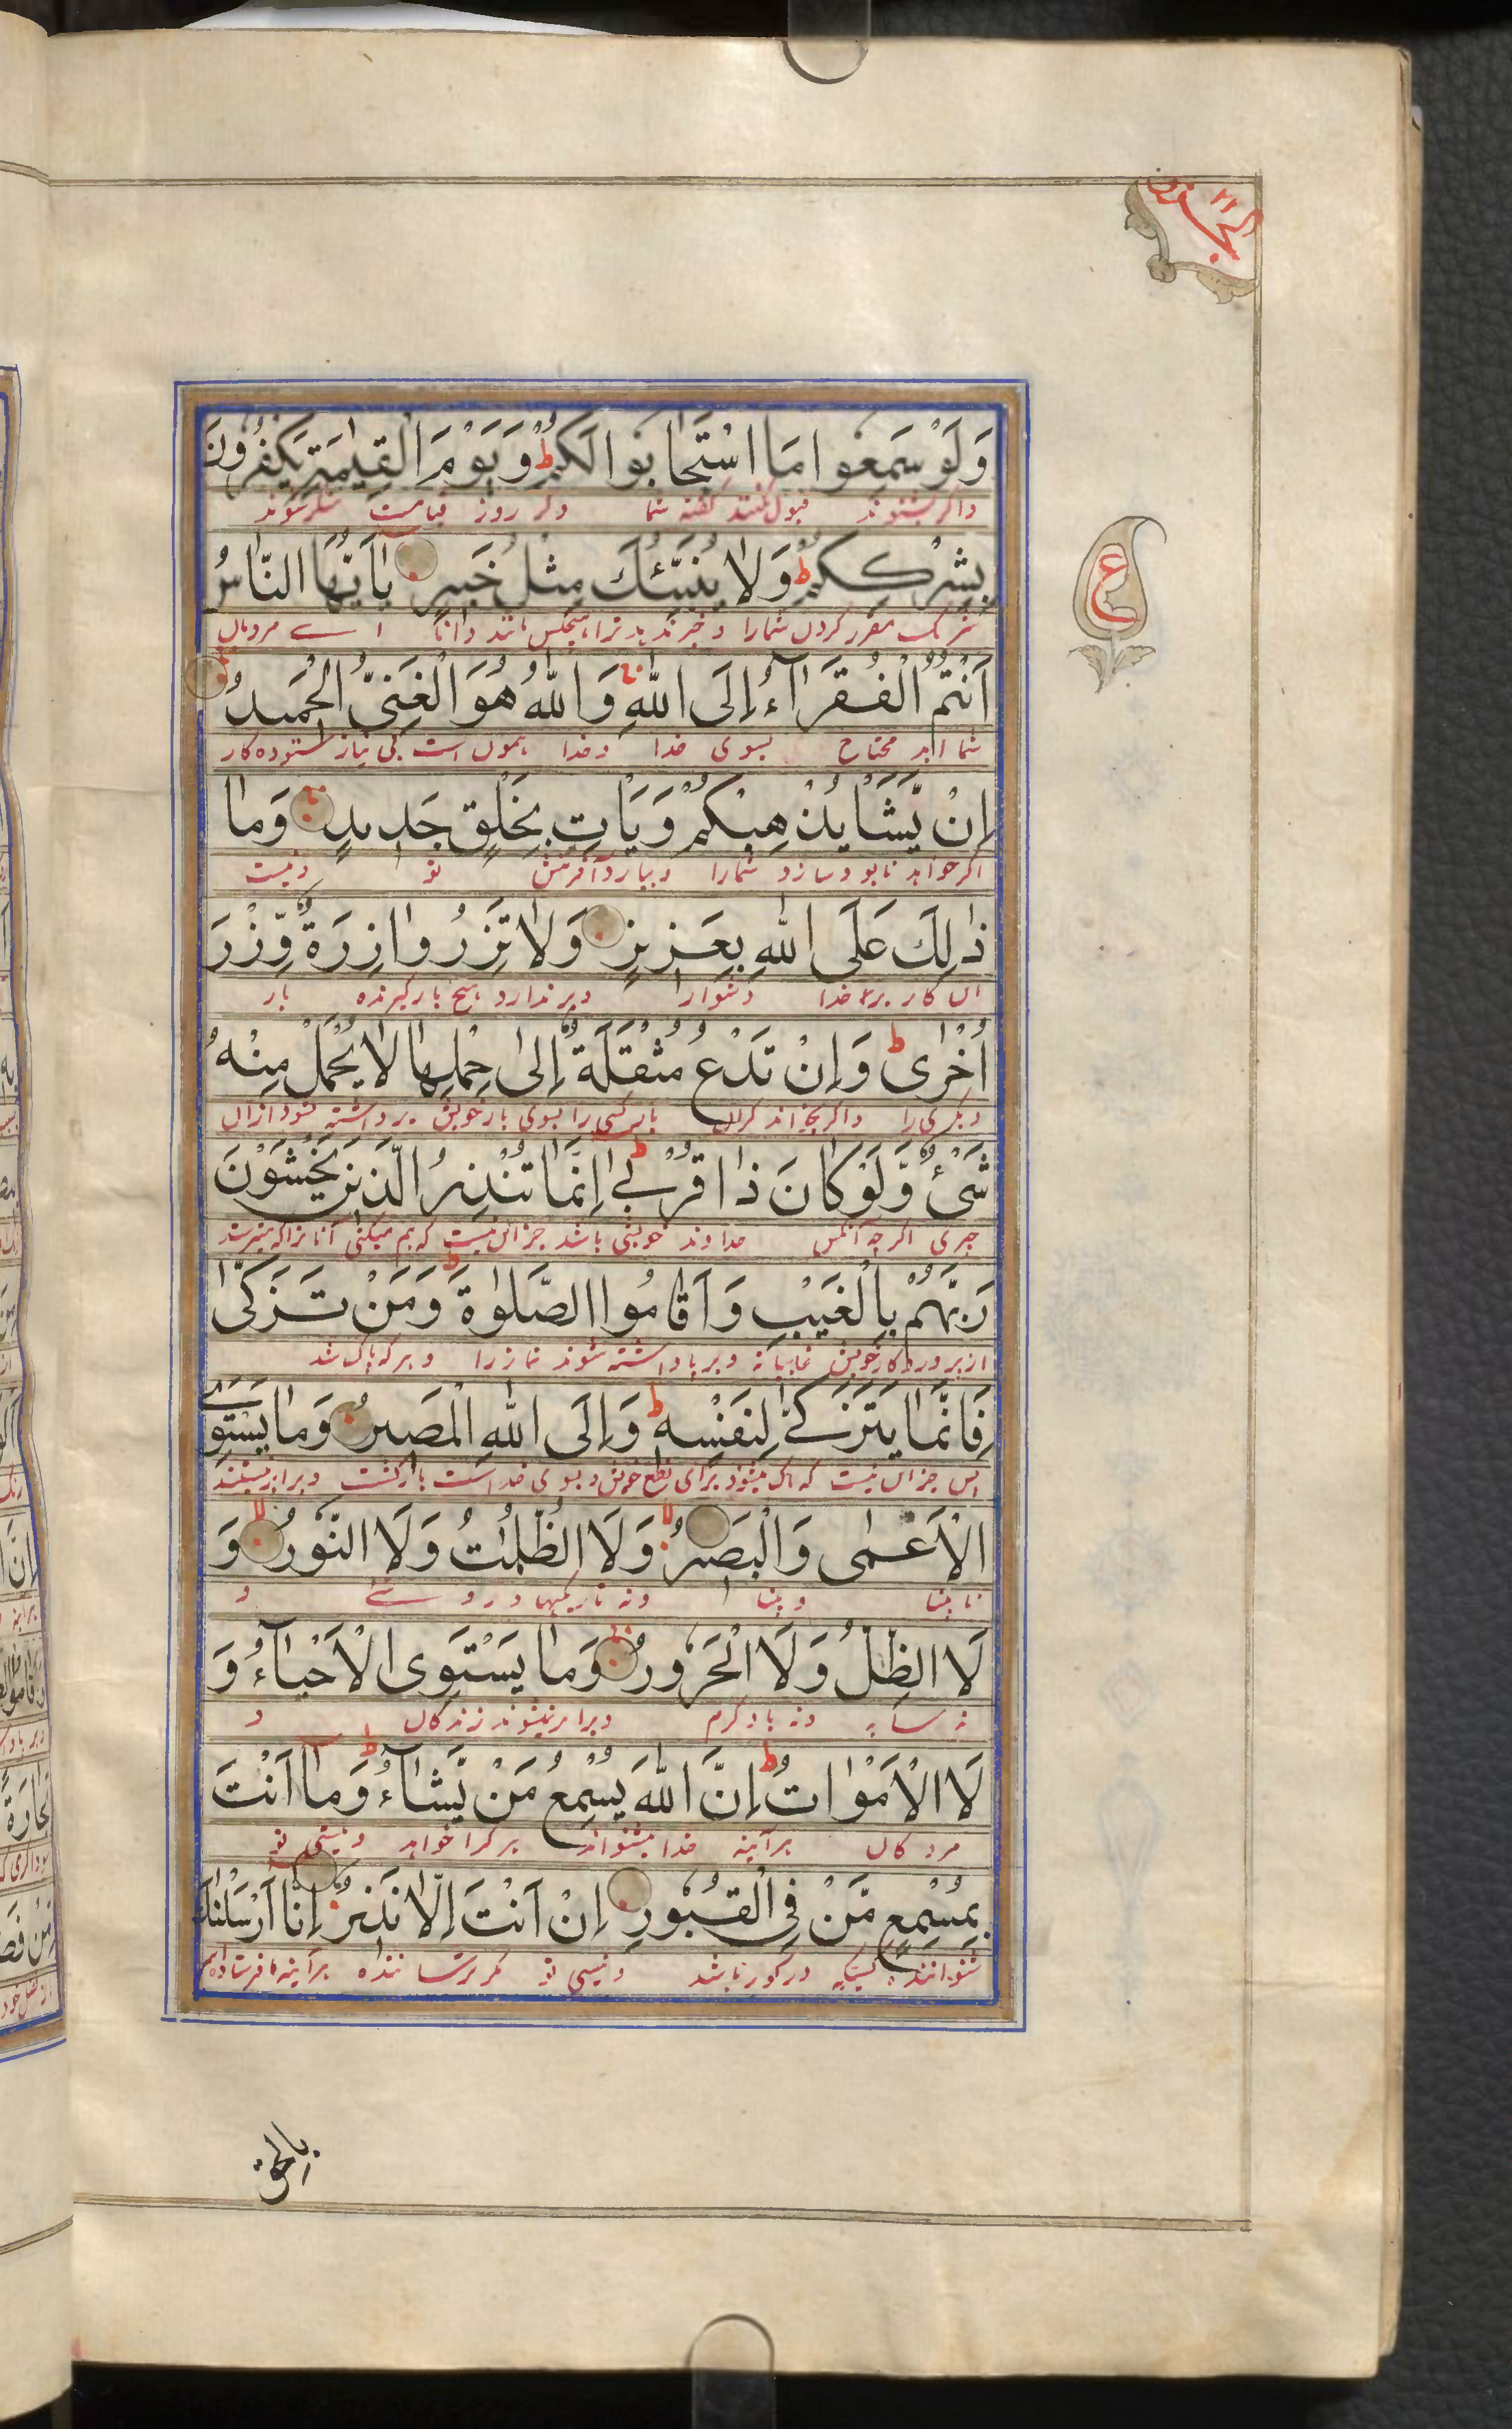 الجزو ٢٢
وَلَوْ سَمِعُوا مَا اسْتَجَابُوا لَكُمْ ط وَيَوْمَ الْقِيٰمَةِ يَكْفُرُونَ
واگر بشنوند قبول نکنند گفته شما و در روز قیامت منکر شوند
بِشِرْكِكُمْ ط وَلَا يُنَبِّئُكَ مِثْلُ خَبِيرٍ يَا أَيُّهَا النَّاسُ
شریک مقرر کردن شمارا و خبر ندهد ترا هیچکس مانند دانا اے مردمان
أَنْتُمُ الْفُقَرَآءُ إِلَى اللّٰهِ وَاللّٰهُ هُوَ الْغَنِيُّ الْحَمِيدُ
شما اید محتاج بسوی خدا و خدا همون است بی نیاز ستوده کار
إِنْ يَّشَأْ يُذْهِبْكُمْ وَيَأْتِ بِخَلْقٍ جَدِيدٍ وَمَا
اگر خواهد نابود سازد شمارا و بیارد آفرینش نو و نیست
ذٰلِكَ عَلَى اللّٰهِ بِعَزِيزٍ وَلَا تَزِرُ وَازِرَةٌ وِّزْرَ
این کار بر خدا دشوار و برندارد هیچ بارگیرنده بار
أُخْرٰى ط وَإِنْ تَدْعُ مُثْقَلَةٌ إِلٰى حِمْلِهَا لَا يُحْمَلْ مِنْهُ
دیگری را واگر بخواند گران بار کسی را بسوی بار خویش برداشته نشود ازان
شَيْءٌ وَّلَوْ كَانَ ذَا قُرْبٰى ط إِنَّمَا تُنْذِرُ الَّذِينَ يَخْشَوْنَ
چیزی اگرچه آنکس خداوند خویشی باشد جز این نیست که بیم میکنی آنانرا که میترسند
رَبَّهُمْ بِالْغَيْبِ وَأَقَامُوا الصَّلٰوةَ ط وَمَنْ تَزَكّٰى
از پروردگار خویش غائبانه و برپا داشته شوند نماز را و هرکه پاک شد
فَإِنَّمَا يَتَزَكّٰى لِنَفْسِهِ ط وَإِلَى اللّٰهِ الْمَصِيرُ وَمَا يَسْتَوِي
پس جز این نیست که پاک میشود برای نفع خویش و بسوی خداست بازگشت و برابر نیستند
الْأَعْمٰى وَالْبَصِيرُ لا وَلَا الظُّلُمٰتُ وَلَا النُّورُ لا وَ
نابینا و بینا و نه تاریکیها و روشنے و
لَا الظِّلُّ وَلَا الْحَرُورُ وَمَا يَسْتَوِى الْأَحْيَآءُ وَ
نه سایه و نه باد گرم و برابر نیشوند زندگان و
لَا الْأَمْوَاتُ ط إِنَّ اللّٰهَ يُسْمِعُ مَنْ يَّشَآءُ ط وَمَا أَنْتَ
مردگان هرآئینه خدا میشنواند هرکرا خواهد و نیستی تو
بِمُسْمِعٍ مَّنْ فِى الْقُبُورِ إِنْ أَنْتَ إِلَّا نَذِيرٌ إِنَّا أَرْسَلْنٰكَ
شنواننده کسیکه در گور باشد و نیستی تو مگر ترساننده هرآئینه ما فرستاده‌ایم
ع
بالحق